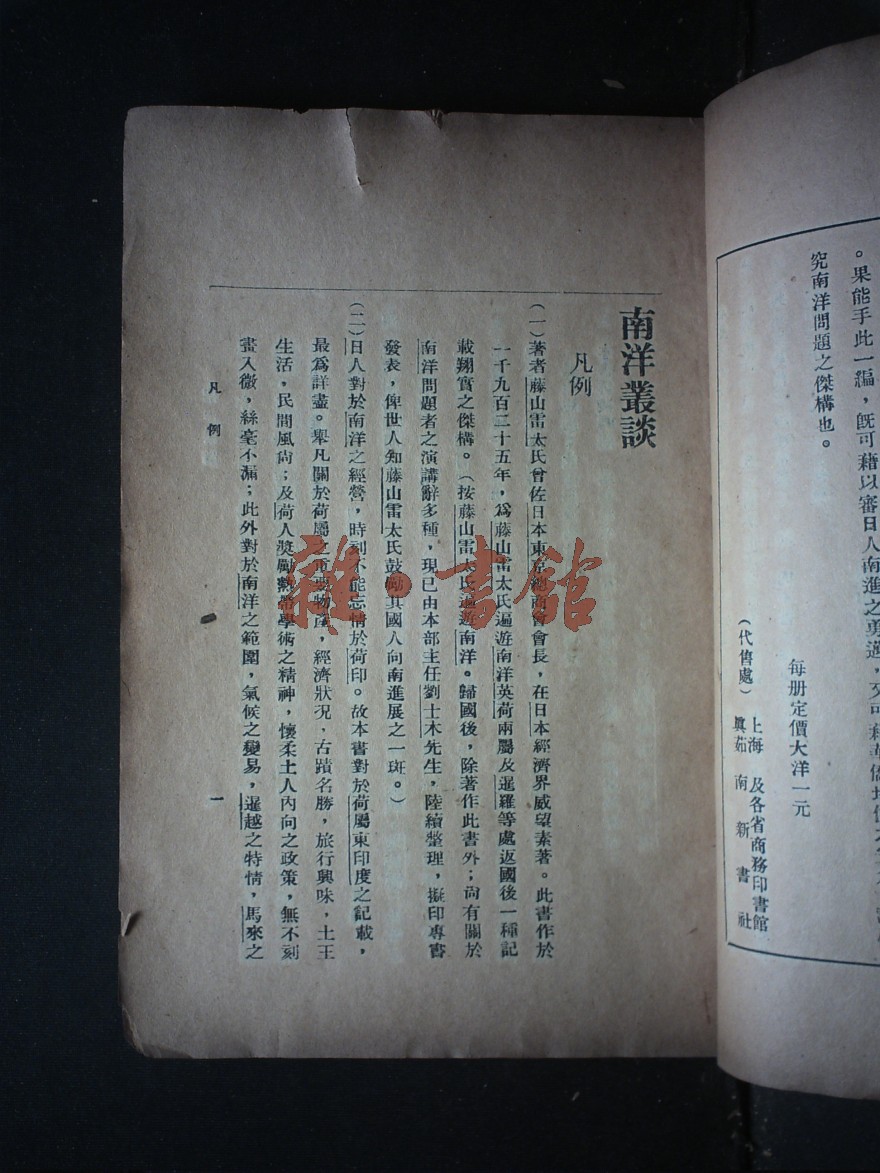 。果能手此一編，既可藉以審日人南進之勇邁，又可
究南洋問題之傑構也。
每册定價大洋一元
（代售處）
上海 及各省商務印書館
眞茹 南新書社
南洋叢談
凡例
（一）著者藤山雷太氏曾佐日本東京總商會會長，在日本經濟界威望素著。此書作於
一千九百二十五年，爲藤山雷太氏遍遊南洋英荷兩屬及暹羅等處返國後一種記
載翔實之傑構。（按藤山雷太氏遍遊南洋。歸國後，除著作此書外；尙有關於
南洋問題者之演講辭多種，現已由本部主任劉士木先生，陸續整理，擬印專書
發表，俾世人知藤山雷太氏鼓勵其國人向南進展之一斑。）
（二）日人對於南洋之經營，時刻不能忘情於荷印。故本書對於荷屬東印度之記載，
最爲詳盡。舉凡關於荷屬之重要物產，經濟狀況，古蹟名勝，旅行興味，土王
生活，民間風尙；及荷人獎勵熱帶學術之精神，懷柔土人內向之政策，無不刻
畫入微，絲毫不漏；此外對於南洋之範圍，氣候之變易，暹越之特情，馬來之
凡例
一
雜·書館